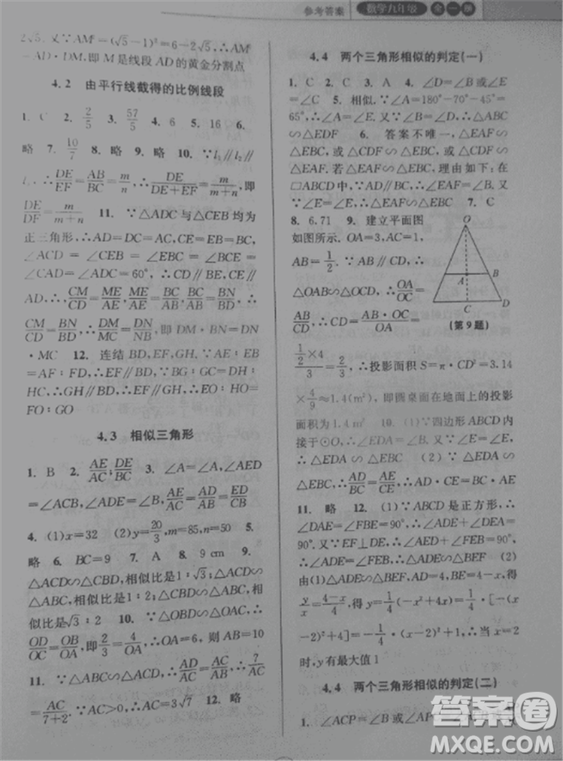 参考答案 数学九年级 全一册
2√5. 又∵AM²=(√5-1)²=6-2√5,∴AM²
=AD·DM,即M是线段AD的黄金分割点
4.2 由平行线截得的比例线段
1. C 2. 2/5 3. 57/5 4. 6 5. 16 6.
略 7. 略 8. 略 9. 略 10. ∵l₁∥l₂∥
l₃,∴DE/EF=AB/BC=m/n,∴DE/(DE+EF)=m/(m+n),即
DE/DF=m/(m+n) 11. ∵△ADC与△CEB均为
正三角形,∴AD=DC,CE=BC=BE,
∠ACD=∠CEB=∠ADC=∠DCE=
∠CBE=∠DAC=60°,∴CE∥AD,BE∥
AD,∴CM/MD=ME/MA,ME/MA=BC/AC,BC/AC=BN/ND,∴
CM/MD=BN/ND,∴CM/DM=BN/DN,即DM·BN=DN
·MC 12. 连结BD,EF,GH,∵AE:EB
=AF:FD,∴EF∥BD,∵AE:EB=DH:
HC,∴GH∥BD,∴EF∥GH,∴EO:HO=
FO:GO
4.3 相似三角形
1. B 2. AE/AC;DE/BC 3. ∠A=∠A,∠AED
=∠ACB,∠ADE=∠B,AE/AC=AD/AB=DE/BC
4. (1)x=32 (2)y=20/3,m=85,n=50 5.
略 6. BC=9 7. A 8. 9 cm 9.
△ACD∽△CBD,相似比是1:√3;△ACD∽
△ABC,相似比是1:2;△CBD∽△ABC,相似
比是√3:2 10. ∵△OBC∽△ODA,∴
OD/OC=OB/OA,即2/3=OA/4,∴OA=6,
11. ∵△ABC∽△ADF,∴AD/AC=AF/AB,∴7/AC
=AC/(7+2),∴AC=3√7 12. 略
4.4 两个三角形相似的判定(一)
1. C 2. C 3. A 4. ∠D=∠E 5.
相似. ∵∠A=180°-70°-45°=
65°,∴∠A=∠D,∠B=∠E,∴△ABC
∽△EDF 6. 答案不唯一,△EAF∽
△EBC,或△CDF∽△EBC,或△EAF∽
△CDF. 理由如下:△EAF∽△EBC,在
□ABCD中,∵AD∥BC,∴∠EAF=
∠B. 又∵∠E=∠E,∴△EAF∽△EBC 7. C
8. 6.71 9. 建立平面图
如图所示,OA=3,AC=1,
AB=1/2.∵AB∥CD,∴
△OAB∽△OCD,∴OA/OC=
AB/CD,∴CD=AB·OC/OA=
(1/2×4)/3=2/3,∴投影面积S=π·CD²=3.14
×4/9≈1.4(m²),即圆桌面在地面上的投影
面积为1.4m² 10. (1)∵四边形ABCD内
接于⊙O,∴∠EDA=∠EBC,∴∠E=∠E,
∴△EDA∽△EBC (2)∵△EDA∽△EBC,∴
AD/BC=AE/CE,∴AD·CE=BC·AE
11. 略 12. (1)∵ABCD是正方形,∴
∠DAF=∠B=90°,∴∠AEB+∠BAE=
90°. 又∵EF⊥DE,∴∠AED+∠AEF=
90°,∴∠AEF=∠ADE,∴△ADE∽△BEF
(2)由(1)△ADE∽△BEF,AD=4,BE=x,得
y/x=(4-x)/4,得y=1/4(-x²+4x)=1/4[-(x
-2)²+4]=-1/4(x-2)²+1,所以当x=2
时,y有最大值1
O
A
B
C
D
(第9题)
4.4 两个三角形相似的判定(二)
1. ∠ACP=∠B或∠APC=
答案圈
MXQE.COM